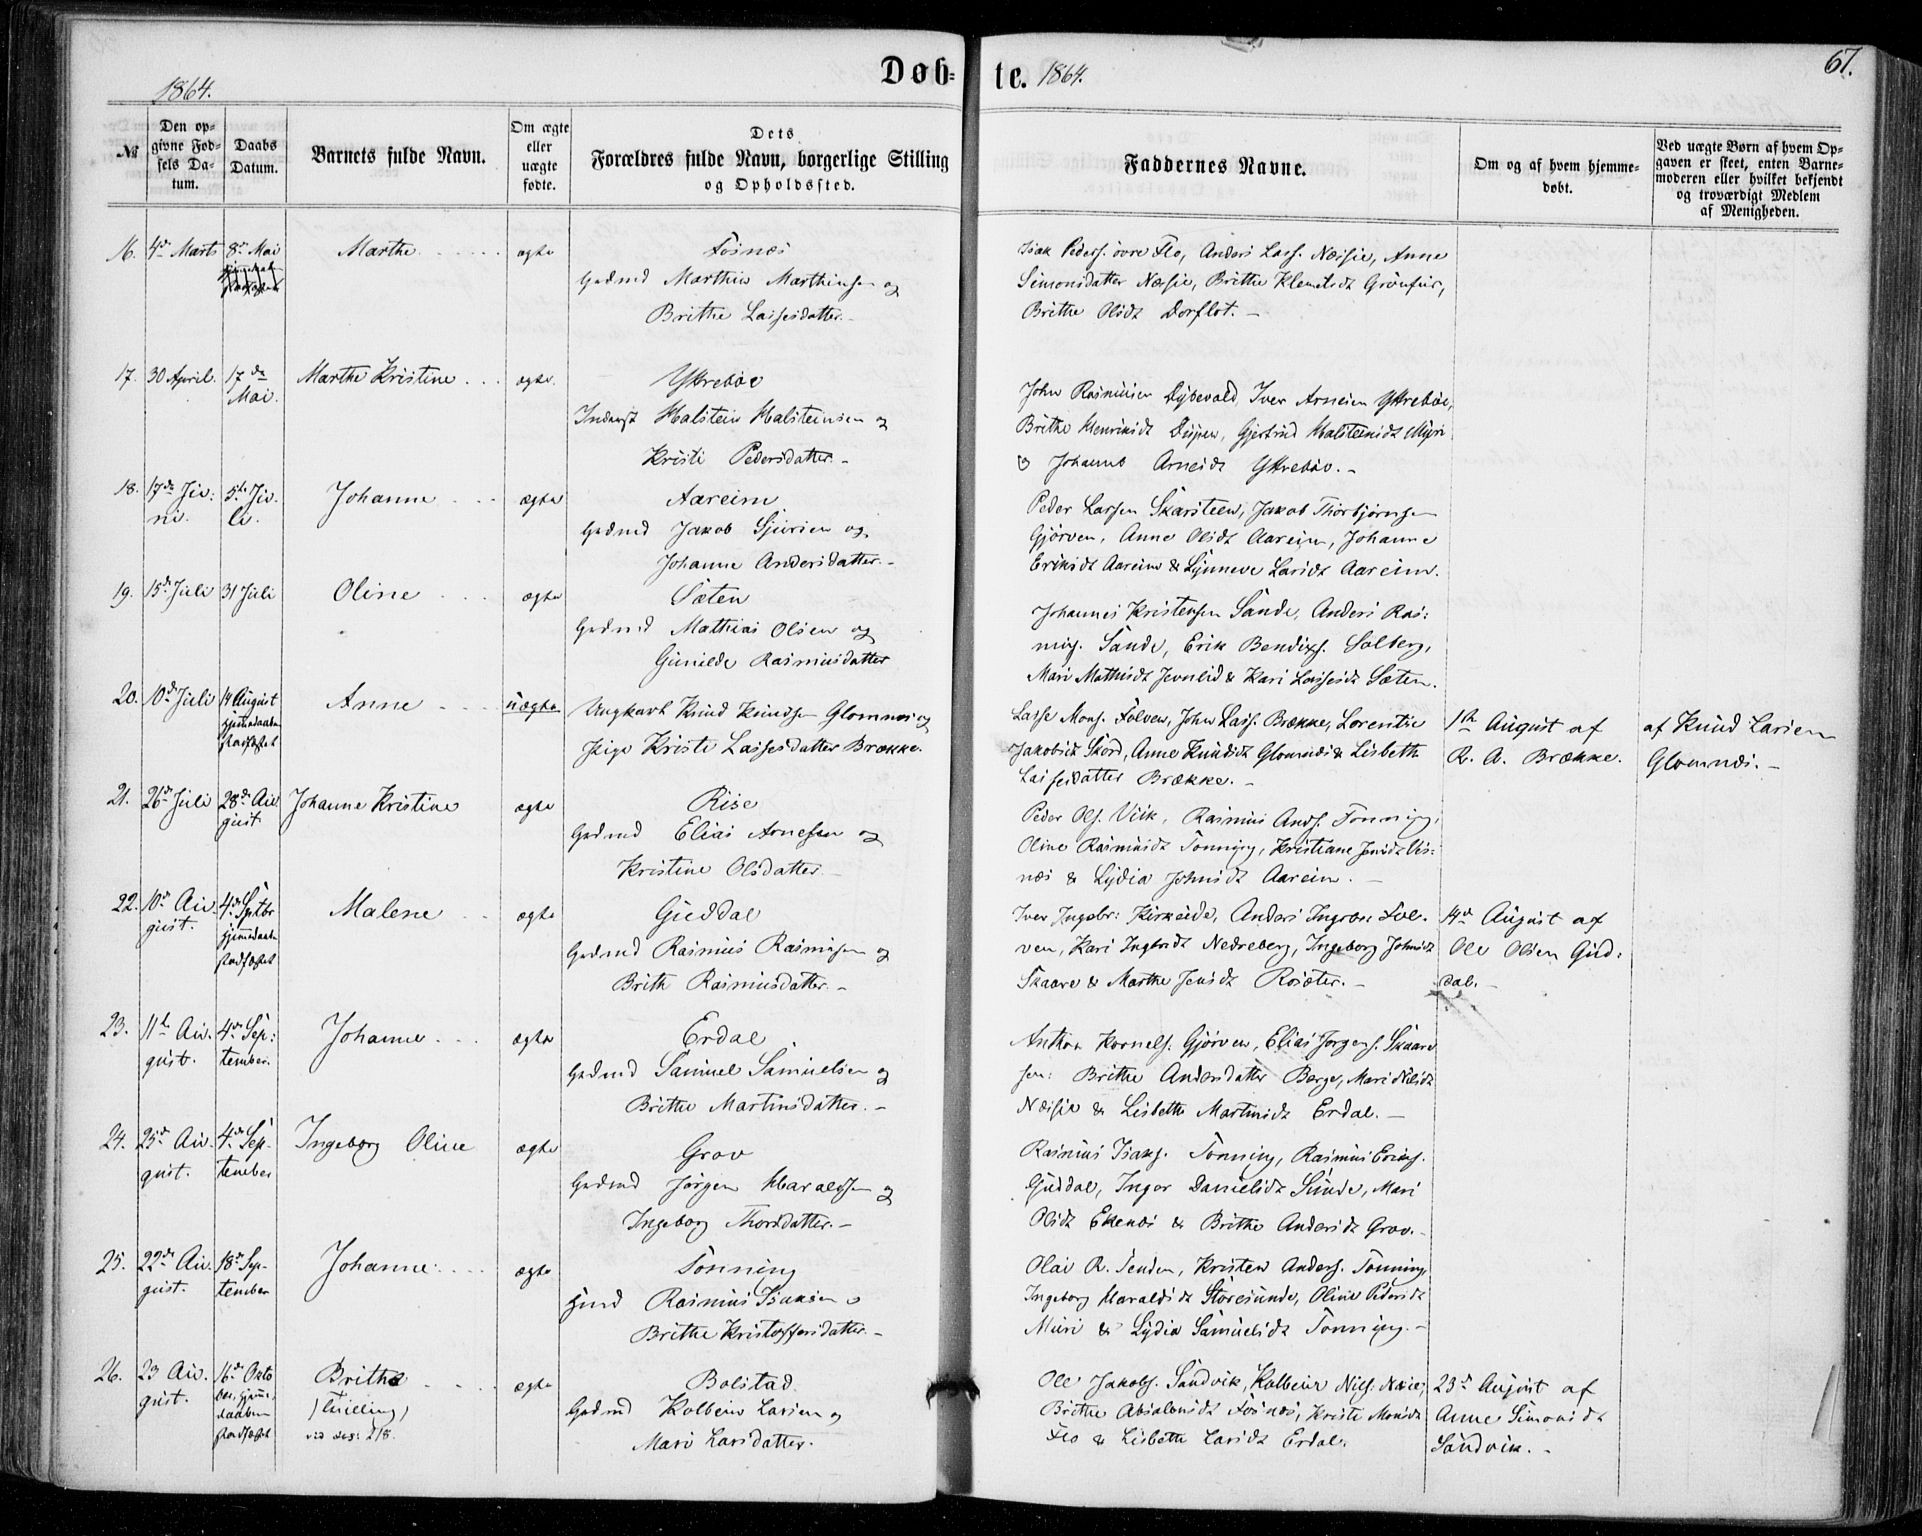 1864.
Døb=
te. 1864.
67.
№
Den op=
givne Fød=
sels Da=
tum.
Daabs
Datum.
Barnets fulde Navn.
Om ægte
eller
uægte
fødte.
Dets
Forældres fulde Navn, borgerlige Stilling
og Opholdssted.
Faddernes Navne.
Om og af hvem hjemme-
døbt.
Ved uægte Børn af hvem Op-
gaven er skeet, enten Barne-
moderen eller hvilket bekjendt
og troværdigt Medlem
af Menigheden.
16. 4de Marts 8de Mai Marthe ægte Fosnæs
Gadmd Marthin Marthinsen og
Brithe Lassesdatter.
Isak Peders. øvre Flo, Anders Lass. Næsje, Anne
Simonsdatter Næsje, Brithe Klemetsdt Grønfur,
Brithe Olsdt Dorflot.
17. 30 April. 17de
Mai.
Marthe Kristine ægte. Yttrebøe
Inderst Halstein Halsteinsen og
Kristi Pedersdatter
John Rasmusen Dybevald, Iver Arnesen Yttrebøe,
Brithe Henriksdt Dispen, Gjertrud Halsteinsdt Myri
& Johanne Arnesdt Yttrebøe.
18. 17de Ju:
ni.
5te Ju.
li.
Johanne ægte Aareim
Gadmd Jakob Sjursen og
Johanne Andersdatter
Peder Larsen Skarsteen, Jakob Thorbjørnsen
Gjørven, Anne Olsdt Aareim, Johanne
Eriksdt Aareim & Synneve Larsdt Aareim.
19. 15de Juli 31 Juli Oline ægte Sæten
Gadmd Mathias Olsen og
Gunilde Rasmusdatter
Johannes Kristensen Sande, Anders Ras:
muss. Sande, Erik Bendixs. Solberg,
Mari Mathisdt Jevnlid & Kari Lassesdt Sæten.
20. 10de Juli 14 August
hjemmedaaben
stadfæstet
Anne uægte Ungkarl Knud Knudsen Glomnes og
Pige Kristi Lassesdatter Brække.
Lasse Mons. Folven, John Lass. Brække, Lorentse
Jakobsdt Skord, Anne Knudsdt Glomnæs & Lisbeth
Lassesdatter Brække.
1ste August af
R. A. Brække.
af Knud Larsen
Glomnæs.
21. 26de Juli 28de Au
gust
Johanne Kristine ægte Rise
Gadmd Elias Arnesen og
Kristine Olsdatter
Peder Ols. Viik, Rasmus Ands. Tonning,
Oline Rasmusdt Tonning, Kristiane Jensdt Vis:
næs & Lydia Johnsdt Aareim.
22. 10de Au.
gust.
4de Septbr
hjemmedaaben
stadfæstet
Malene ægte Guddal
Gadmd Rasmus Rasmussen og
Brith Rasmusdatter.
Iver Ingebr: Kirkeide, Anders Ingebr. Fol.
ven, Kari Ingebrdt Nedreberg, Ingeborg Johnsdt
Skaare & Marthe Jensdt Rosæter.
14de August af
Ole Olsen Gud:
dal.
23. 11te Au.
gust.
4de Sep:
tember.
Johanne ægte Erdal
Gadmd Samuel Samuelsen og
Brithe Martinsdatter.
Anthon Kornels. Gjørven, Elias Jørgens. Skaare
sen: Brithe Andersdatter Berge, Mari Nilsdt
Næsje & Lisbeth Martinsdt Erdal.
24. 25de Au.
gust.
4de Sep-
tember
Ingeborg Oline ægte Grov
Gadmd Jørgen Haraldsen og
Ingeborg Thorsdatter.
Rasmus Isaks. Tonning, Rasmus Eriks.
Guddal, Inger Danielsdt Sunde, Mari
Olsdt Ekenæs & Brithe Andersdt Grov.
25. 22de Au.
gust.
18de Sep-
tember
Johanne ægte Tonning
Hmd Rasmus Isaksen &
Brithe Kristoffersdatter.
Olai R. Tenden, Kristen Anders. Tonning,
Ingeborg Haraldsdt Storesunde, Oline Pedersdt
Muri & Lydia Samuelsdt Tonning.
26. 23 Au.
gust.
16de Octo
ber, hjemme.
daaben
stadfæstet
Brithe
(Tvilling)
ægte Bolstad
Gadmd Kolbein Larsen og
Mari Larsdatter.
Ole Jakobs. Sandvik, Kolbein Nils. Næsje,
Brithe Absalonsdt Fosnæs, Kristi Monsdt
Flo & Lisbeth Larsdt Erdal.
23de August af
Anne Simonsdt
Sandvik.